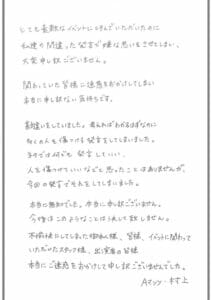 とても素敵なイベントによんでいただいたのに
私達の間違った発言で嫌な思いをさせてしまい、
大変申し訳ございません。
関わっていた皆様に迷惑をおかけしてしまい
本当に申し訳ない気持ちです。
勘違いをしていました。考えればわかるはずなのに
多くの人を傷つける発言をしてしまいました。
ネタでは何でも発言していい、
人を傷つけていいなどと思ったことはありませんが、
今回の発言でそれをしてしまいました。
本当に無知でした。本当に申し訳ございません。
今後はこのようなことは決して致しません。
不愉快にしてしまった 皆様、イベントに関わって
いただいたスタッフ様、出演者の皆様
本当にご迷惑をおかけして申し訳ございませんでした。
Aマッソ・村上